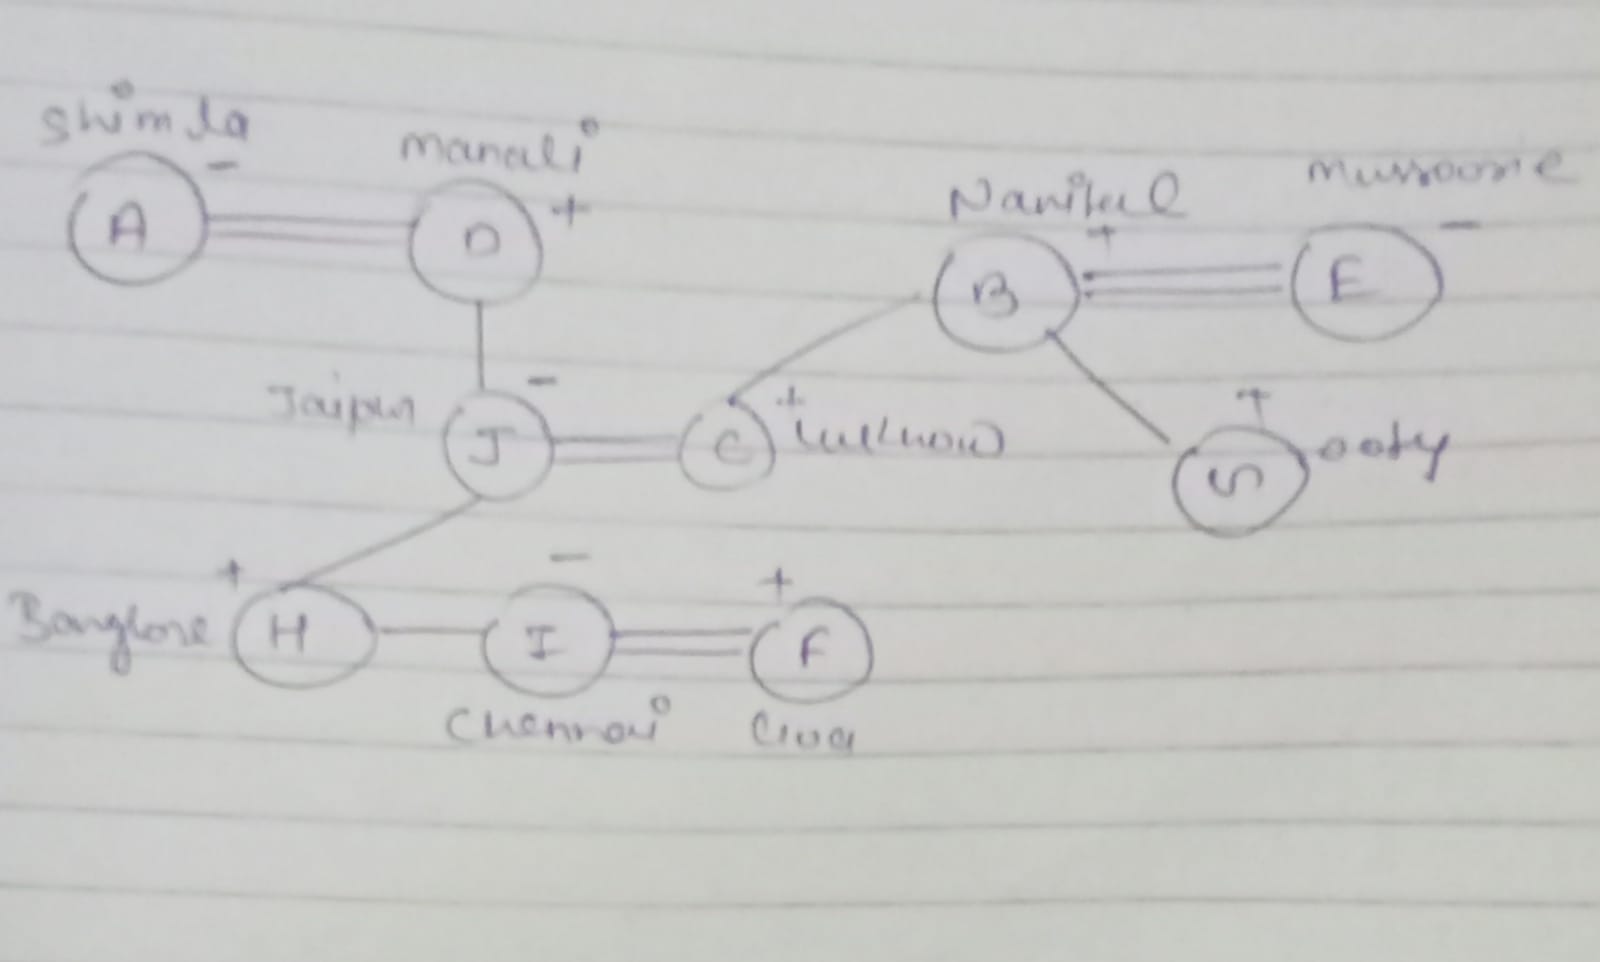 Shimla
manali
Nanital
mussoorie
A - D +
B + E -
Jaipur J - C + lucknow
S + ooty
Banglore + H I - F +
Chennai Goa